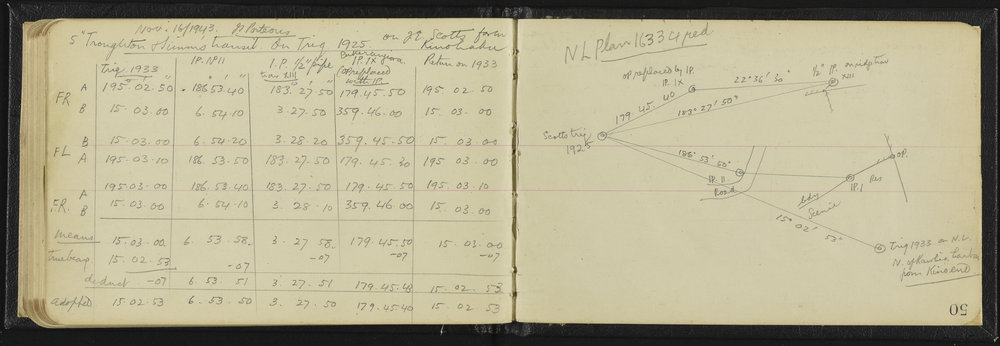 Nov. 16/1943. J Porteous
5" Troughton & Simms transit. On Trig 1925. on J.E. Scotts farm
Trig 1933 IP. IP II I.P. ½" pipe IP. IX Return on 1933
trav XIII (OP replaced with IP.
° ' " ° ' "
FR A 195.02.50 186 53.40 183.27.50 179.45.50 195 02.50
B 15.03.00 6.54.10 3.27.50 359.46.00 15.03.00
FL B 15.03.00 6.54.20 3.28.20 359.45.50 15.03.00
A 195.03.10 186.53.50 183.27.50 179.45.30 195 03.00
FR. A 195.03.00 186.53.40 183.27.50 179.45.50 195.03.10
B 15.03.00 6.54.10 3.28.10 359.46.00 15.03.00
means 15.03.00 6.53.58 3.27.58 179.45.50 15.03.00
true bearg 15.02.53 -07 -07 -07 -07
deduct -07 6.53.51 3.27.51 179.45.43 15.02.53
adopted 15.02.53 6.53.50 3.27.50 179.45.40 15.02.53
NL Plan 16334 ped
OP replaced by IP.
IP. IX
22° 36' 30"
½" IP. on ridge trav
XIII
179. 45. 40
183° 27' 50"
Scotts trig
1925
186° 53' 50"
IP. II
Road
IP. I
Res
OP.
bdy
Scenic
15° 02' 53"
Trig 1933 on N.L.
N. of
from
50